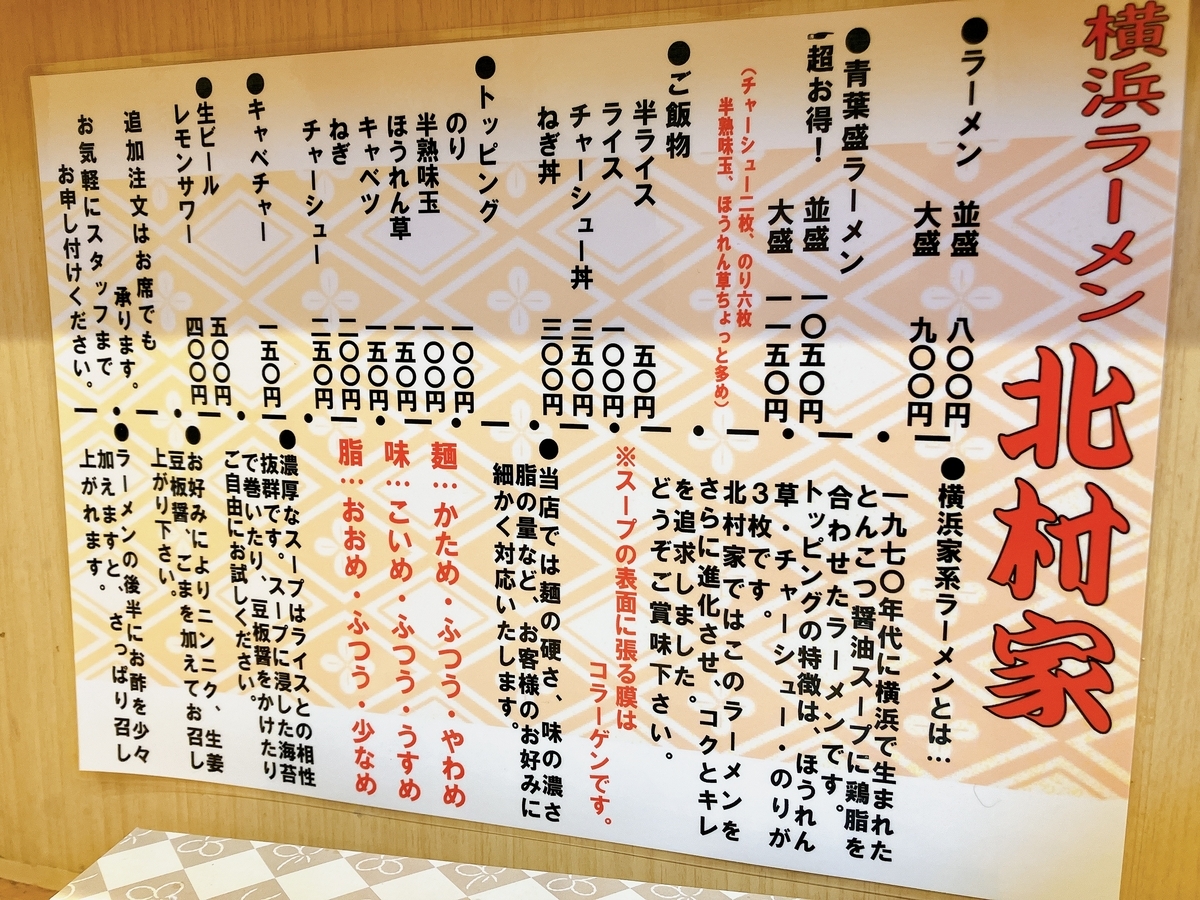 横浜ラーメン 北村家
●ラーメン 並盛 八〇〇円
大盛 九〇〇円
●青葉盛ラーメン
超お得! 並盛 一〇五〇円
大盛 一一五〇円
(チャーシュー二枚、のり六枚
半熟味玉、ほうれん草ちょっと多め)
●ご飯物
半ライス 五〇円
ライス 一〇〇円
チャーシュー丼 三五〇円
ねぎ丼 三〇〇円
●トッピング
のり 一〇〇円
半熟味玉 一〇〇円
ほうれん草 一五〇円
キャベツ 一五〇円
ねぎ 二〇〇円
チャーシュー 二五〇円
●キャベチャー 一五〇円
●生ビール 五〇〇円
レモンサワー 四〇〇円
追加注文はお席でも
承ります。
お気軽にスタッフまで
お申し付けください。
●横浜家系ラーメンとは…
一九七〇年代に横浜で生まれた
とんこつ醤油スープに鶏脂を
合わせたラーメンです。
トッピングの特徴は、ほうれん
草・チャーシュー・のりが
3枚です。
北村家ではこのラーメンを
さらに進化させ、コクとキレ
を追求しました。
どうぞご賞味下さい。
※スープの表面に張る膜は
コラーゲンです。
●当店では麺の硬さ、味の濃さ
脂の量など、お客様のお好みに
細かく対応いたします。
麺…かため・ふつう・やわめ
味…こいめ・ふつう・うすめ
脂…おおめ・ふつう・少なめ
●濃厚なスープはライスとの相性
抜群です。スープに浸した海苔
で巻いたり、豆板醤をかけたり
ご自由にお試しください。
●お好みによりニンニク、生姜
豆板醤、ごまを加えてお召し
上がり下さい。
●ラーメンの後半にお酢を少々
加えますと、さっぱり召し
上がれます。